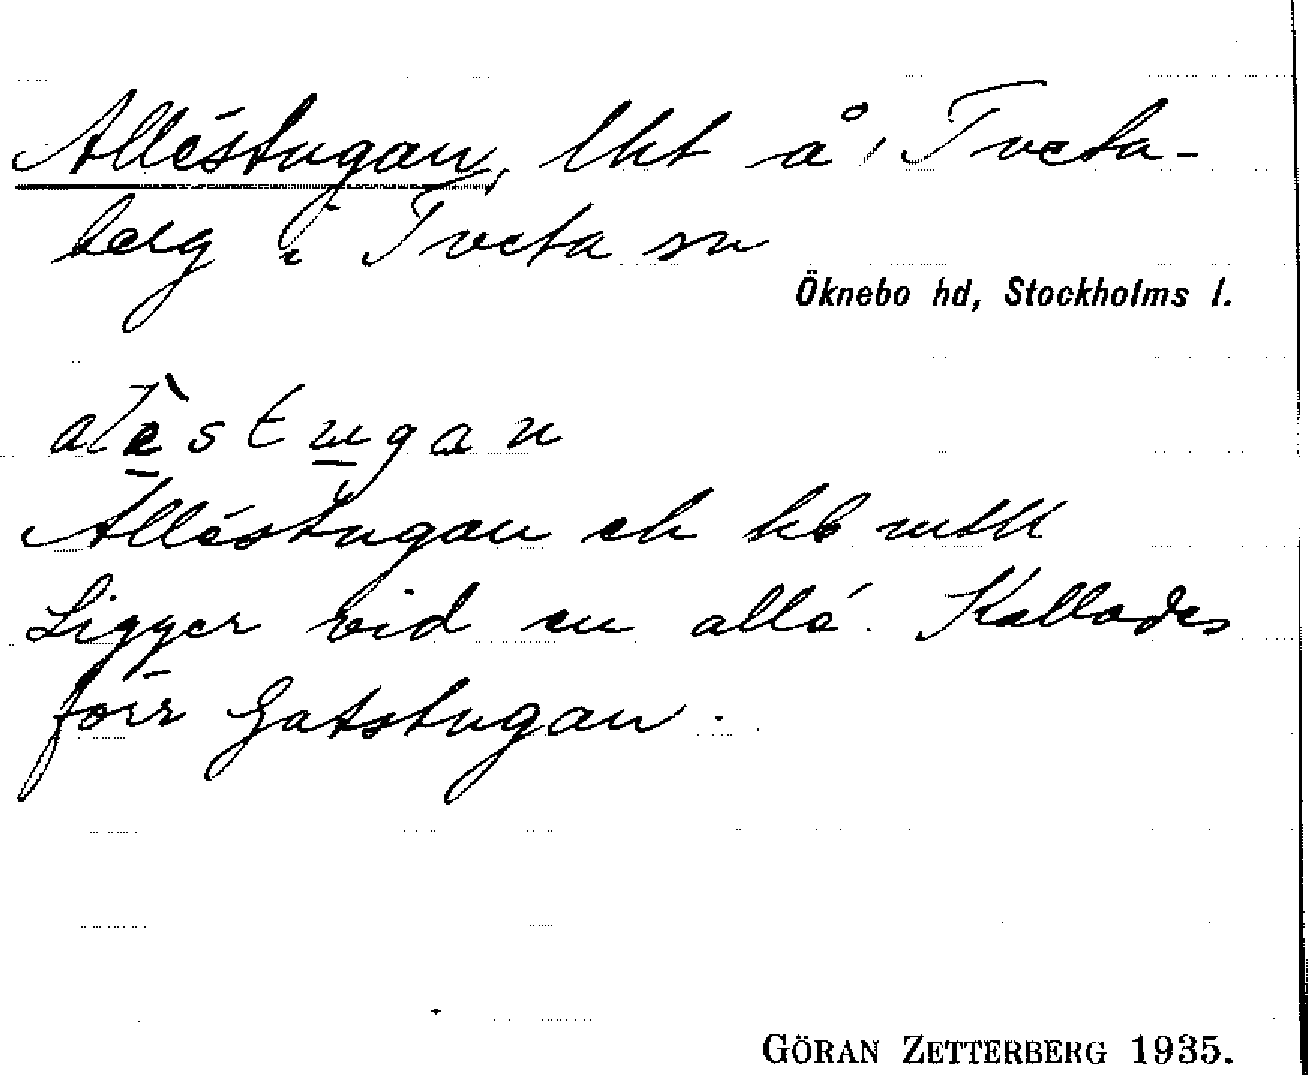 Alléstugan, lht å Tveta-
berg i Tveta sn
Öknebo hd, Stockholms l.
alèstugan
Alléstugan ek kb mtll
Ligger vid en allé. Kallades
förr Gatstugan.
GÖRAN ZETTERBERG 1935.